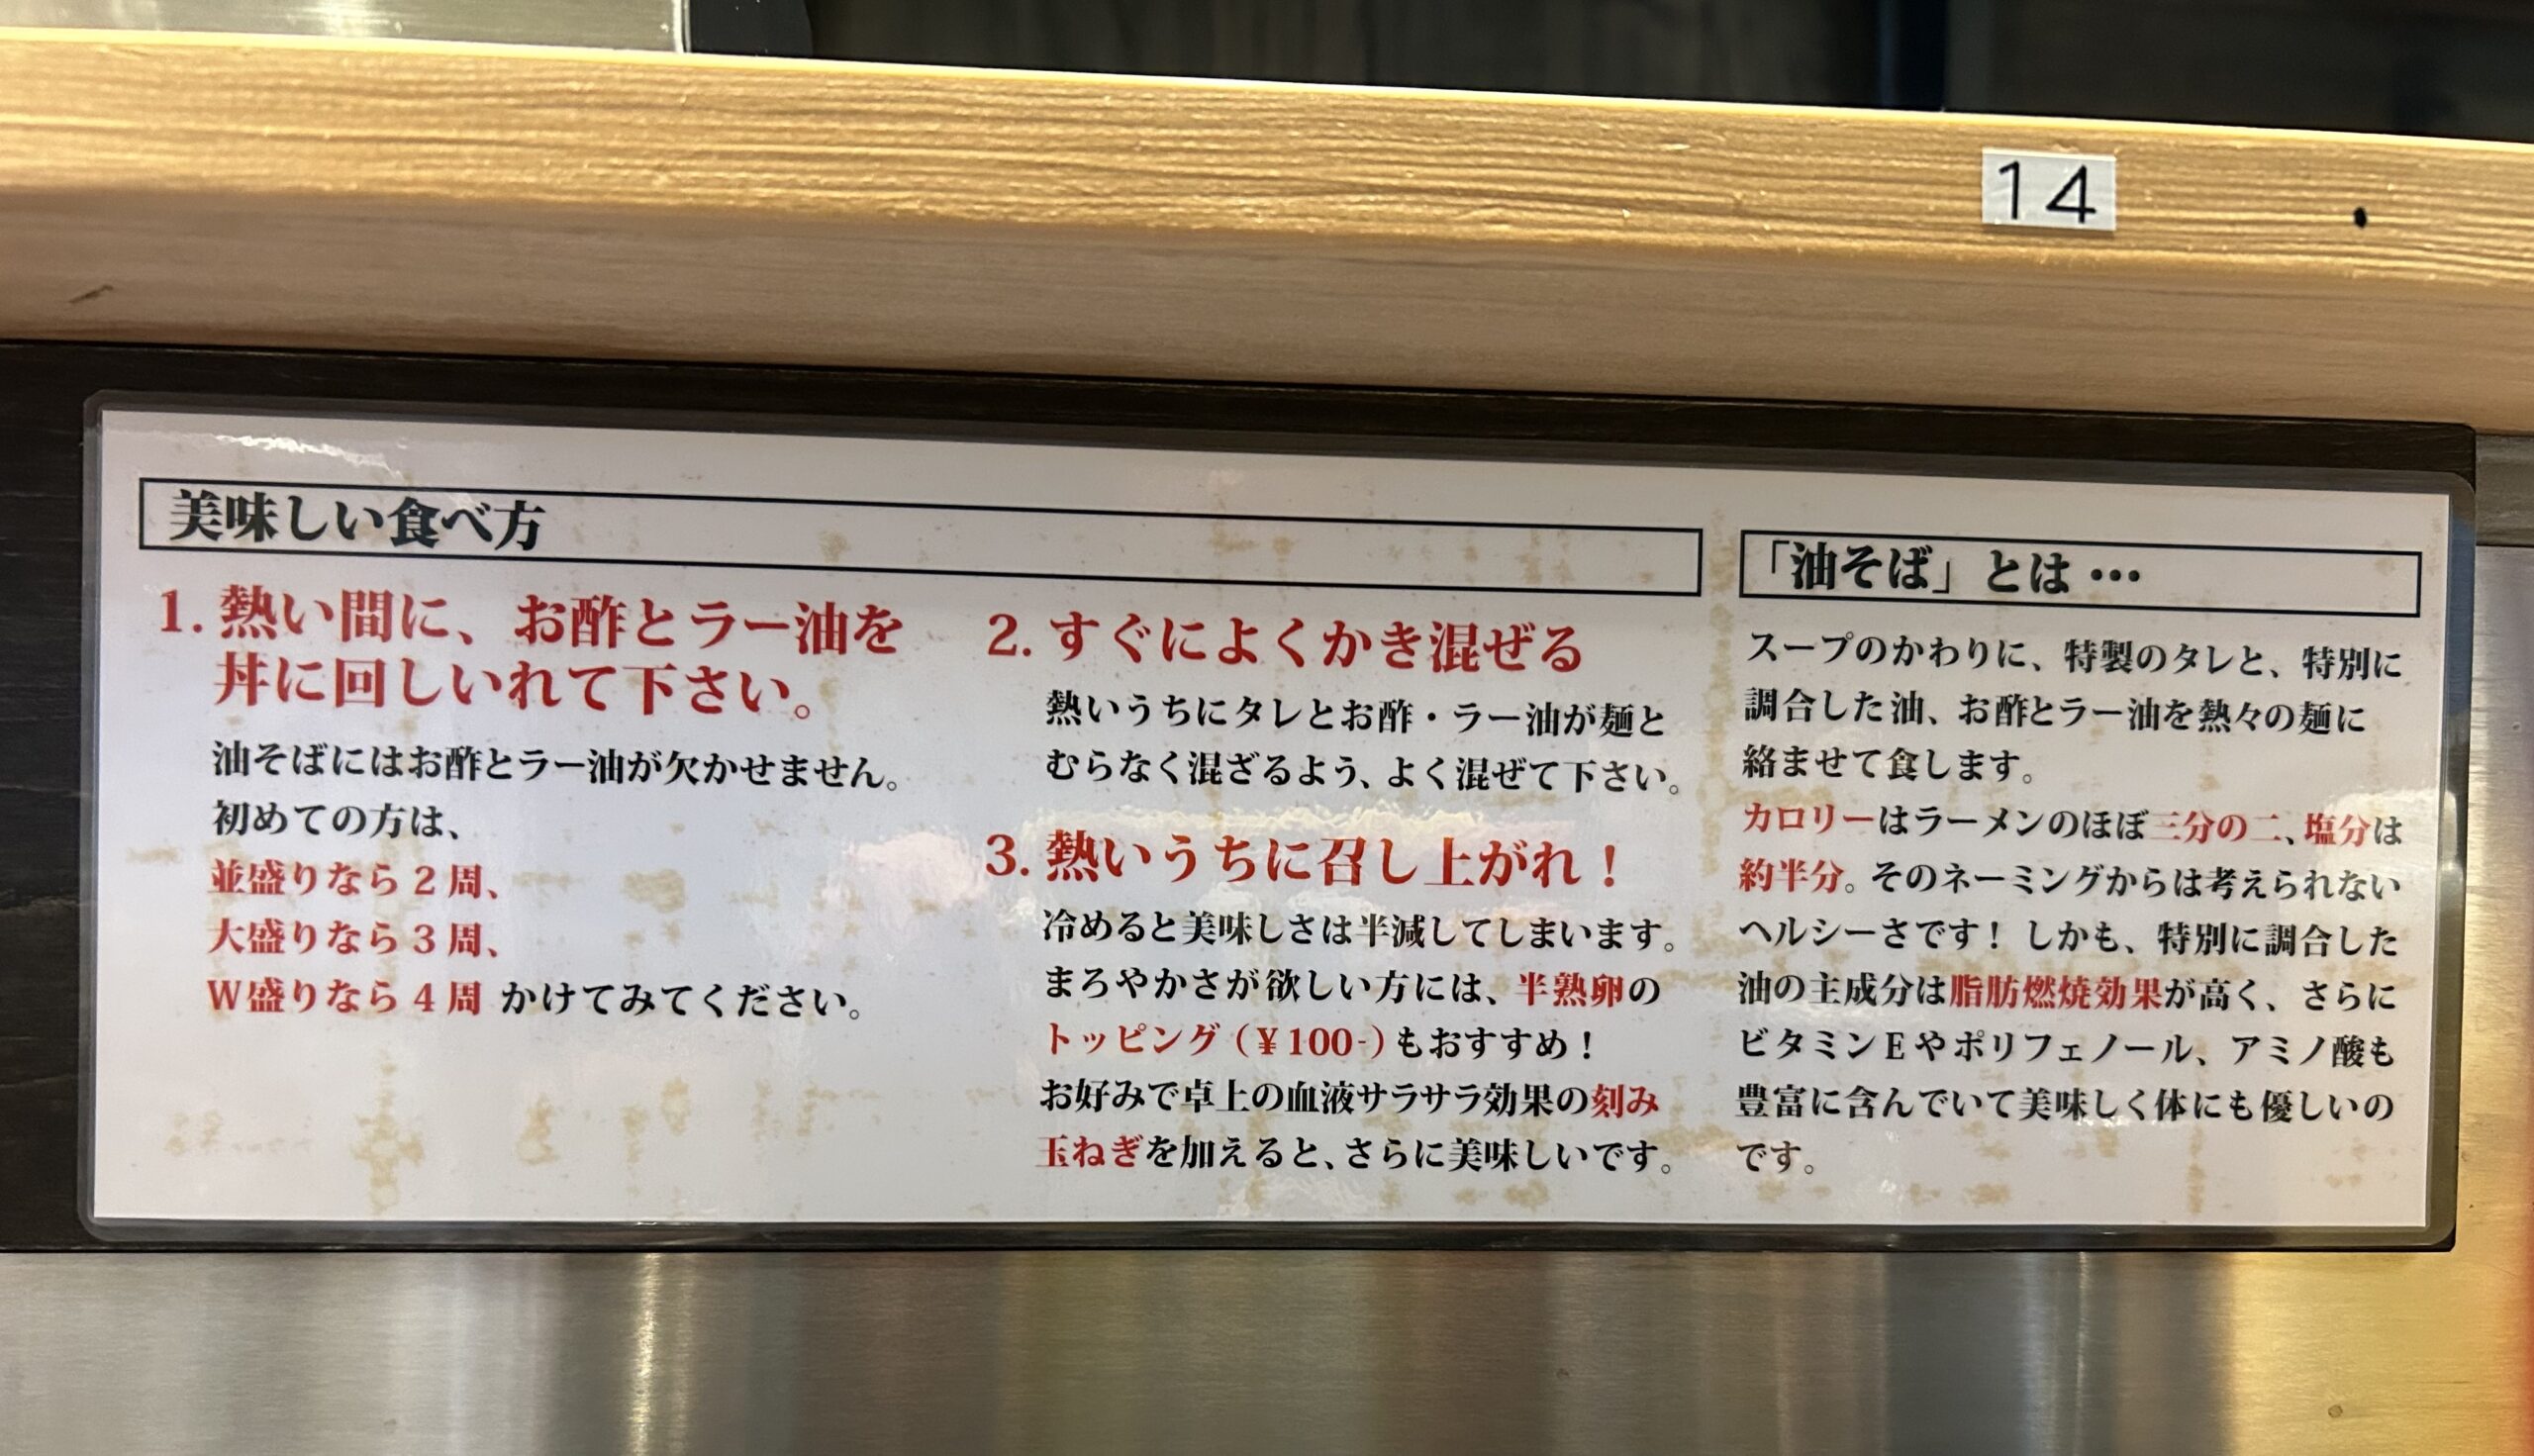 14
美味しい食べ方
1. 熱い間に、お酢とラー油を
丼に回しいれて下さい。
油そばにはお酢とラー油が欠かせません。
初めての方は、
並盛りなら2周、
大盛りなら3周、
W盛りなら4周 かけてみてください。
2. すぐによくかき混ぜる
熱いうちにタレとお酢・ラー油が麺と
むらなく混ざるよう、よく混ぜて下さい。
3. 熱いうちに召し上がれ！
冷めると美味しさは半減してしまいます。
まろやかさが欲しい方には、半熟卵の
トッピング（¥100-）もおすすめ！
お好みで卓上の血液サラサラ効果の刻み
玉ねぎを加えると、さらに美味しいです。
「油そば」とは…
スープのかわりに、特製のタレと、特別に
調合した油、お酢とラー油を熱々の麺に
絡ませて食します。
カロリーはラーメンのほぼ三分の二、塩分は
約半分。そのネーミングからは考えられない
ヘルシーさです！しかも、特別に調合した
油の主成分は脂肪燃焼効果が高く、さらに
ビタミンEやポリフェノール、アミノ酸も
豊富に含んでいて美味しく体にも優しいの
です。